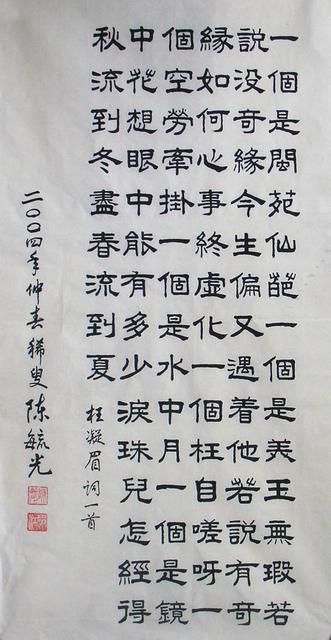 一個是閬苑仙葩一個是美玉無瑕若
說没奇緣今生偏又遇着他若說有奇
緣如何心事終虛化一個枉自嗟呀一
個空勞牽掛一個是水中月一個是鏡
中花想眼中能有多少淚珠兒怎經得
秋流到冬盡春流到夏
枉凝眉詞一首
二〇〇四年仲春稀叟陈毓光